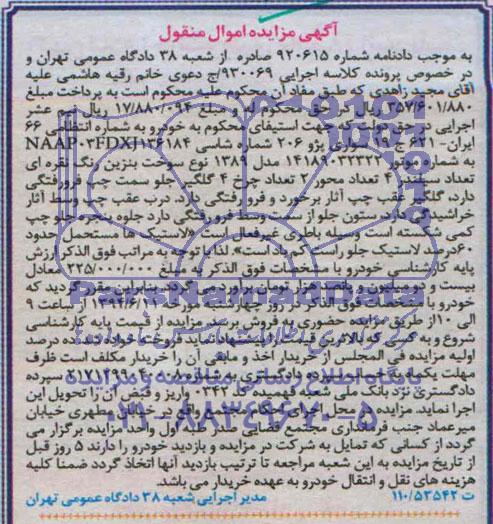 آگهی مزایده اموال منقول
به موجب دادنامه شماره ۹۲۰۶۱۵ صادره از شعبه ۳۸ دادگاه عمومی تهران و
در خصوص پرونده کلاسه اجرایی ۹۳۰۰۶۹/ج دعوی خانم رقیه هاشمی علیه
آقای مجید زاهدی که طبق مفاد آن محکوم علیه محکوم است به پرداخت مبلغ
۳۵۷/۶۰۱/۸۸۰ ریال در حق محکوم له و مبلغ ۱۷/۸۸۰/۰۹۴ ریال نیم عشر
اجرایی در حق دولت که جهت استیفای محکوم به خودرو به شماره انتظامی ۶۶
ایران- ۶۲۱ ج ۱۹ سواری پژو ۲۰۶ شماره شاسی NAAP۰۳FDXJ۱۳۶۱۸۴
به شماره موتور ۱۴۱۸۹۰۳۲۳۲۲ مدل ۱۳۸۹ نوع سوخت بنزین رنگ نقره ای
تعداد سیلندر ۴ تعداد محور ۲ تعداد چرخ ۴ گلگیر جلو سمت چپ فرورفتگی
دارد، گلگیر عقب چپ آثار برخورد و فرورفتگی دارد. درب عقب چپ وسط آثار
خراشیدگی دارد، ستون جلو از سمت وسط فرورفتگی دارد جلوه پنجره جلو چپ
کمی شکسته است وسیله باطری غیرفعال است «لاستیک ها مستحمل حدود
۶۰درصد لاستیک جلو راست کم باد است». لذا با توجه به مراتب فوق الذکر ارزش
پایه کارشناسی خودرو با مشخصات فوق الذکر به مبلغ ۲۲۵/۰۰۰/۰۰۰ معادل
بیست و دو میلیون و پانصد هزار تومان برآورد می گردد. بنابراین مقرر گردید که
خودرو با مشخصات فوق الذکر در روز چهارشنبه مورخه ۱۳۹۴/۶/۱۱ از ساعت ۹
الی ۱۰از طریق مزایده حضوری به فروش برسد. مزایده از قیمت پایه کارشناسی
شروع و به کسی که بالاترین قیمت را پیشنهاد نماید فروخته خواهد شد. ده درصد
اولیه مزایده فی المجلس از خریدار اخذ و مابقی آن را خریدار مکلف است ظرف
مهلت یکماه به حساب سپرده دادگستری به شماره ۲۱۷۱۲۹۹۰۴۰۰۰۸ سپرده
دادگستری نزد بانک ملی شعبه فهمیده کد ۰۳۴۲ واریز و فیش آن را تحویل این
اجرا نماید. مزایده در محل اجرای احکام مجتمع واقع در خیابان مطهری خیابان
میرعماد جنب فرمانداری مجتمع قضایی صدر طبقه اول واحد مزایده برگزار می
گردد از کسانی که تمایل به شرکت در مزایده و بازدید خودرو را دارند ۵ روز قبل
از تاریخ مزایده به این شعبه مراجعه تا ترتیب بازدید آنها اتخاذ گردد ضمنا کلیه
هزینه های نقل و انتقال خودرو به عهده خریدار می باشد.
ت ۱۱۰/۵۳۵۴۲ مدیر اجرایی شعبه ۳۸ دادگاه عمومی تهران
ParsNamadData
پایگاه اطلاع رسانی مناقصه و مزایده
۰۲۱-۸۸۳۴۹۶۷۰-۵